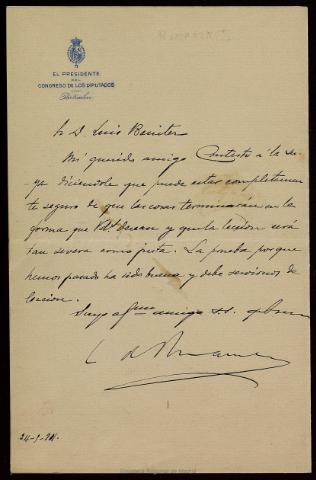 EL PRESIDENTE
DEL
CONGRESO DE LOS DIPUTADOS
Particular
Sr D. Luis Benitez
Mi querido amigo Contesto á la su-
ya diciendole que puede estar completamen
te seguro de que las cosas terminarán en la
forma que Vds desean y que la lección será
tan severa como justa. La prueba porque
hemos pasado ha sido buena y debe servirnos de
leccion.
Suyo affmo amigo s.s.
C de Romanones
24-1-911.
Biblioteca Regional de Madrid